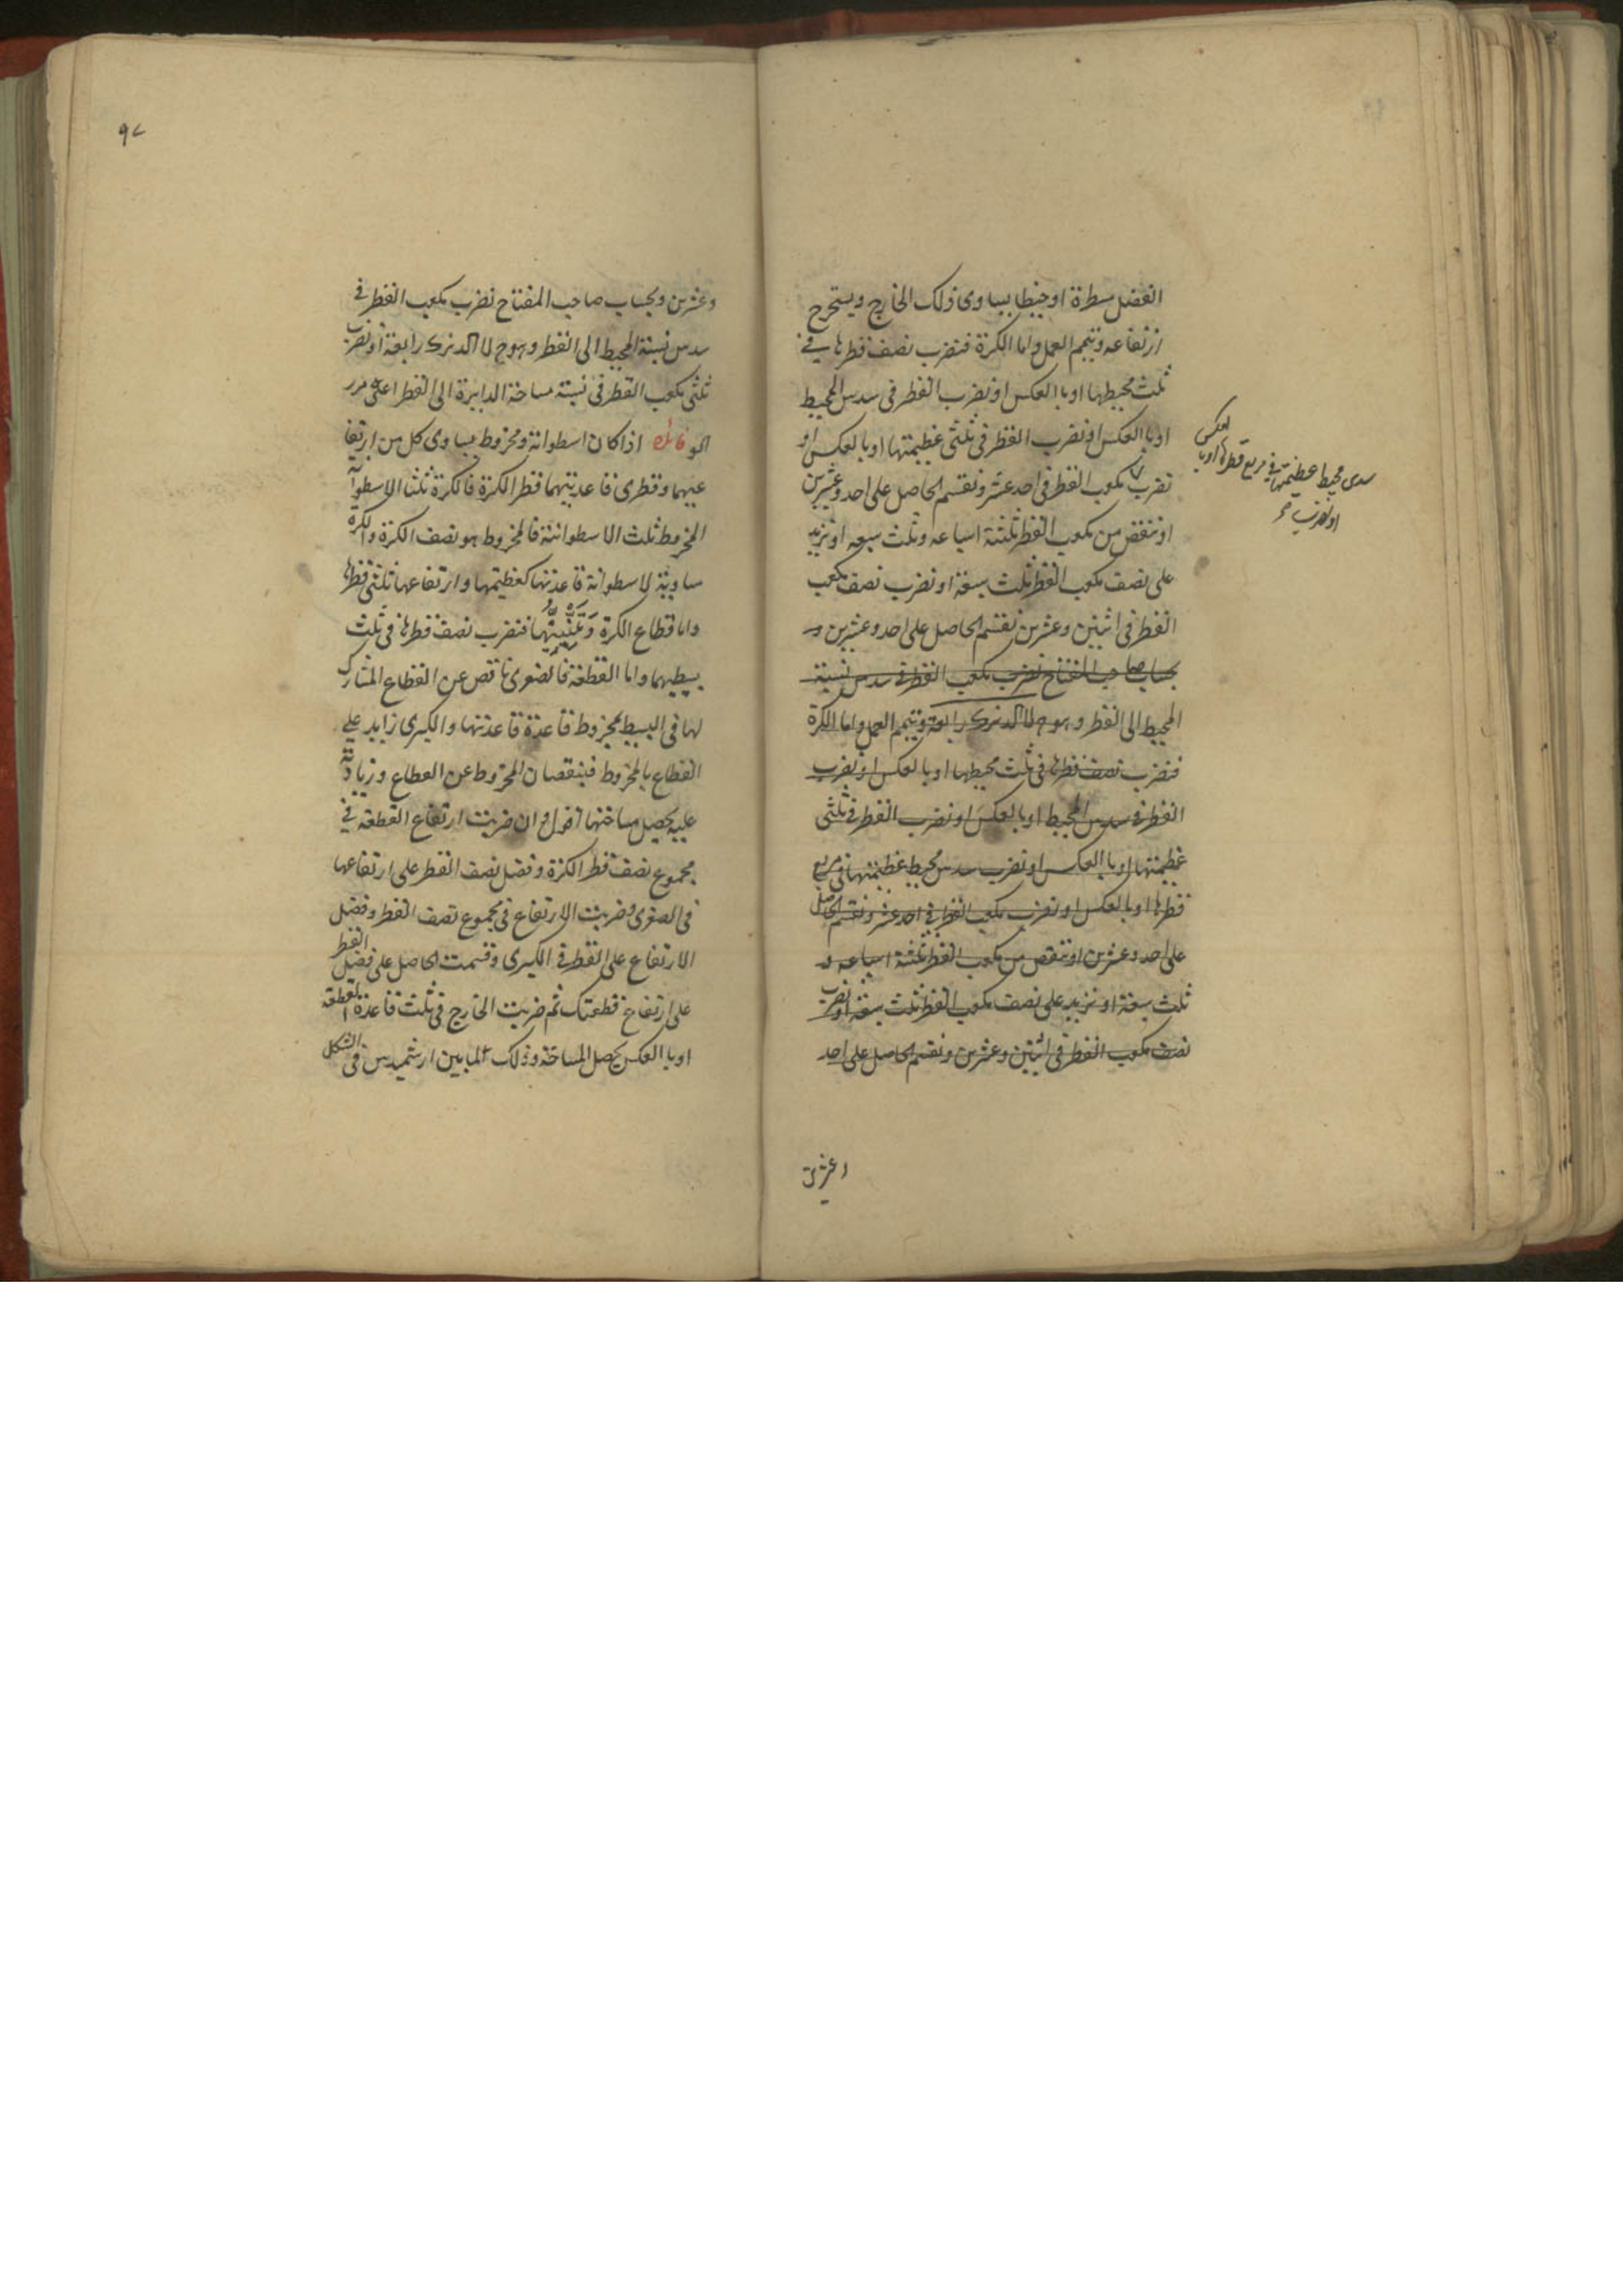 الفضل مسطرة او خيطا يساوى ذلك الخارج ويستخرج
ارتفاعه ونتمم العمل واما الكرة فنضرب نصف قطرها في
ثلث محيطها او بالعكس او نضرب القطر فى سدس المحيط
او بالعكس او نضرب القطر فى ثلثى عظيمتها او بالعكس او
نضرب مكعب القطر فى احد عشر ونقسم الحاصل على احد وعشرين
او ننقص من مكعب القطر ثلثة اسباعه وثلث سبعه او نزيد
على نصف مكعب القطر ثلث سبعة او نضرب نصف مكعب
القطر فى اثنين وعشرين نقسم الحاصل على احد وعشرين و
بحساب صاحب المفتاح نضرب مكعب القطر فى سدس نسبة
المحيط الى القطر وهو ج رابعة ونتمم العمل واما الكرة
فنضرب نصف قطرها فى ثلث محيطها او بالعكس او نضرب
القطر فى سدس المحيط او بالعكس او نضرب القطر فى ثلثى
عظيمتها او بالعكس او نضرب سدس محيط عظيمتها فى مربع
قطرها او بالعكس او نضرب مكعب القطر فى احد عشر ونقسم الحاصل
على احد وعشرين او ننقص من مكعب القطر ثلثة اسباعه و
ثلث سبعة او نزيد على نصف مكعب القطر ثلث سبعة او نضرب
نصف مكعب القطر فى اثنين وعشرين ونقسم الحاصل على احد
وعشرين
سدس محيط عظيمتها في مربع قطرها او با
لعكس
او نضرب
٩٧
وعشرين وبحساب صاحب المفتاح نضرب مكعب القطر فى
سدس نسبة المحيط الى القطر وهو ج رابعة او نضرب
ثلثى مكعب القطر فى نسبة مساحة الدايرة الى القطر اعنى
فائدة اذا كان اسطوانة ومخروط يساوى كل من ارتفا
عيهما وقطرى قاعدتيهما قطر الكرة فالكرة ثلثا الاسطوانة
المخروط ثلث الاسطوانة فالمخروط هو نصف الكرة والكرة
مساوية لاسطوانة قاعدتها كعظيمتها وارتفاعها ثلثى قطرها
واما قطاع الكرة فنضرب نصف قطرها فى ثلث
بسيطهما واما القطعة فالصغرى ناقص عن القطاع المشارك
لها فى البسيط بمخروط قاعدة قاعدتها والكبرى زايد على
القطاع بالمخروط فبنقصان المخروط عن القطاع وزيادته
عليه يحصل مساحتها اقول وان ضربت ارتفاع القطعة في
مجموع نصف قطر الكرة وفضل نصف القطر على ارتفاعها
فى الصغرى وضربت الارتفاع فى مجموع نصف القطر وفضل
الارتفاع على القطر فى الكبرى وقسمت الحاصل على فضل القطر
على ارتفاع قطعتك ثم ضربت الخارج فى ثلث قاعدة القطعة
او بالعكس يحصل المساحة وذلك لما بين ارشميدس فى الشكل